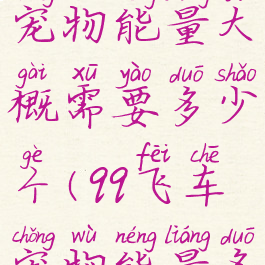 宠物能量大
gài xū yào duō shǎo
概需要多少
gè fēi chē
个（99飞车
chǒng wù néng liàng duō
宠物能量多